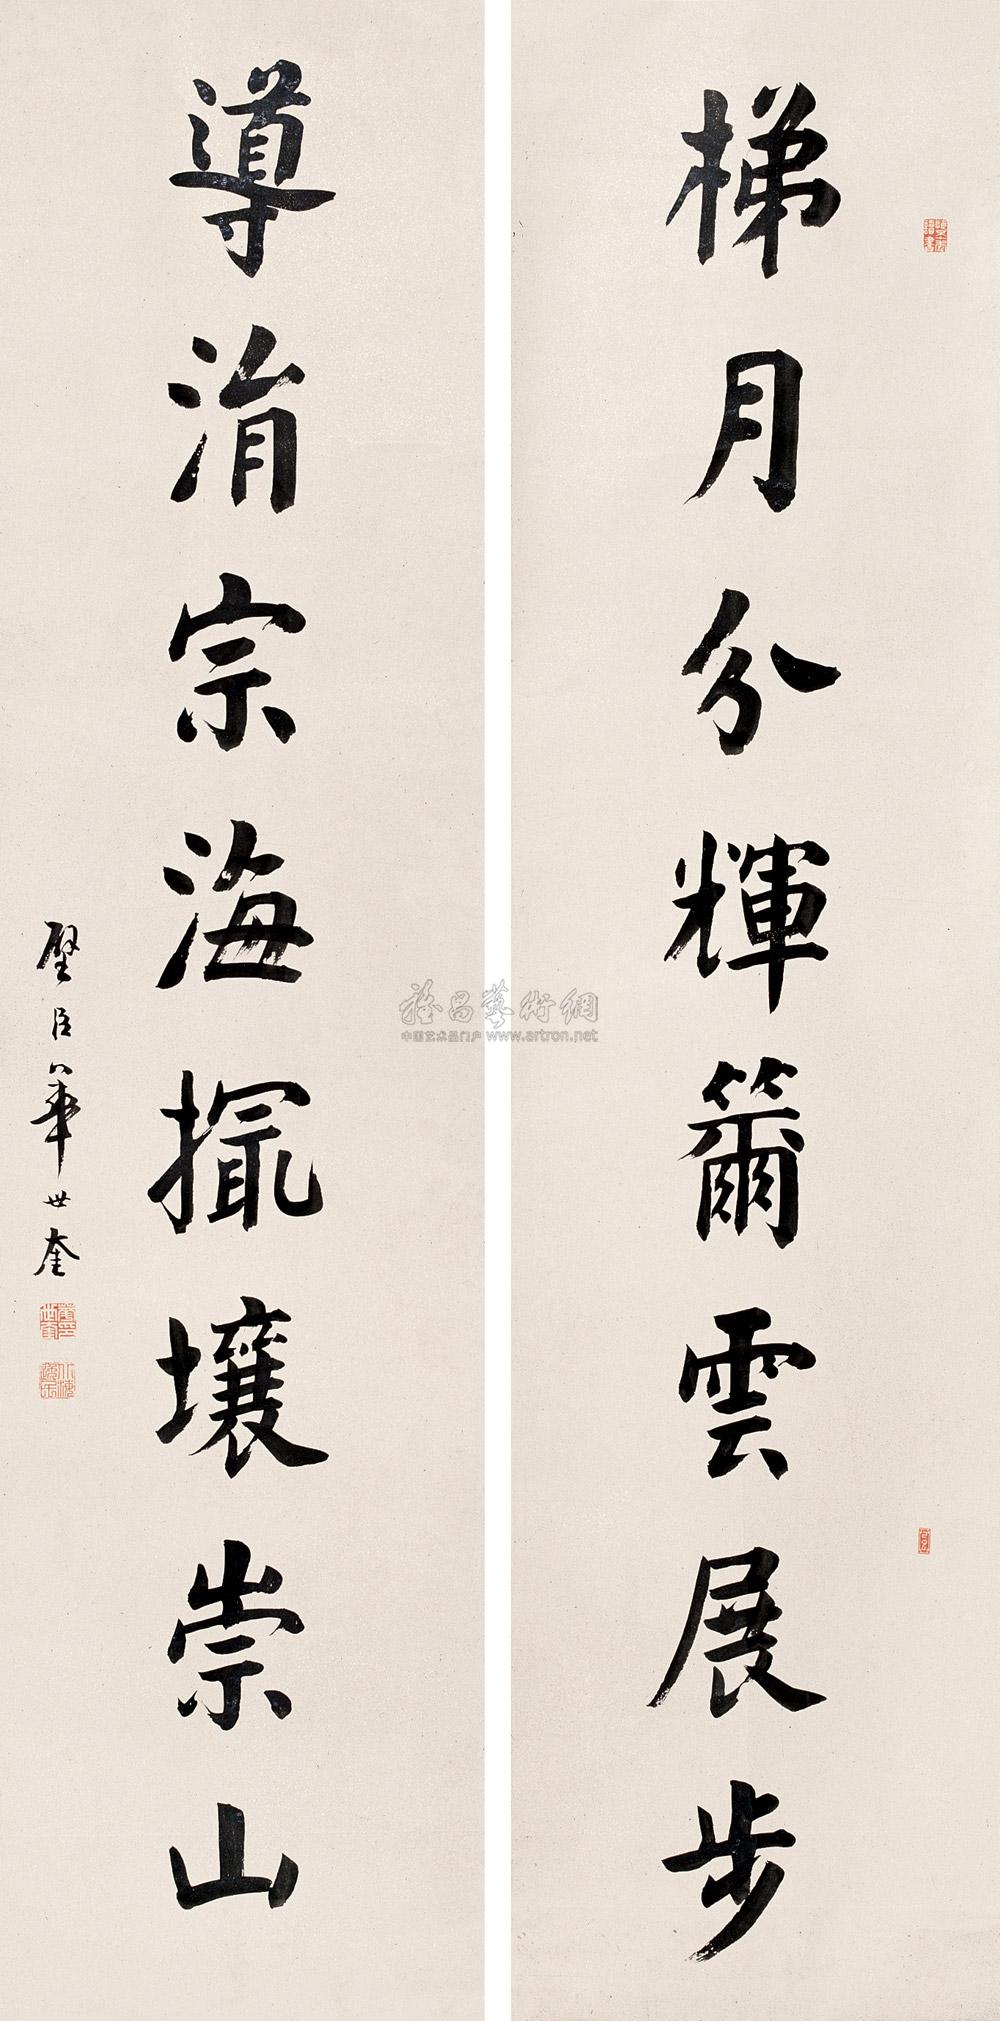 梯月分輝籋雲展步
導涓宗海撮壤崇山
璧臣華世奎
雅昌藝術網
中国艺术品门户 www.artron.net